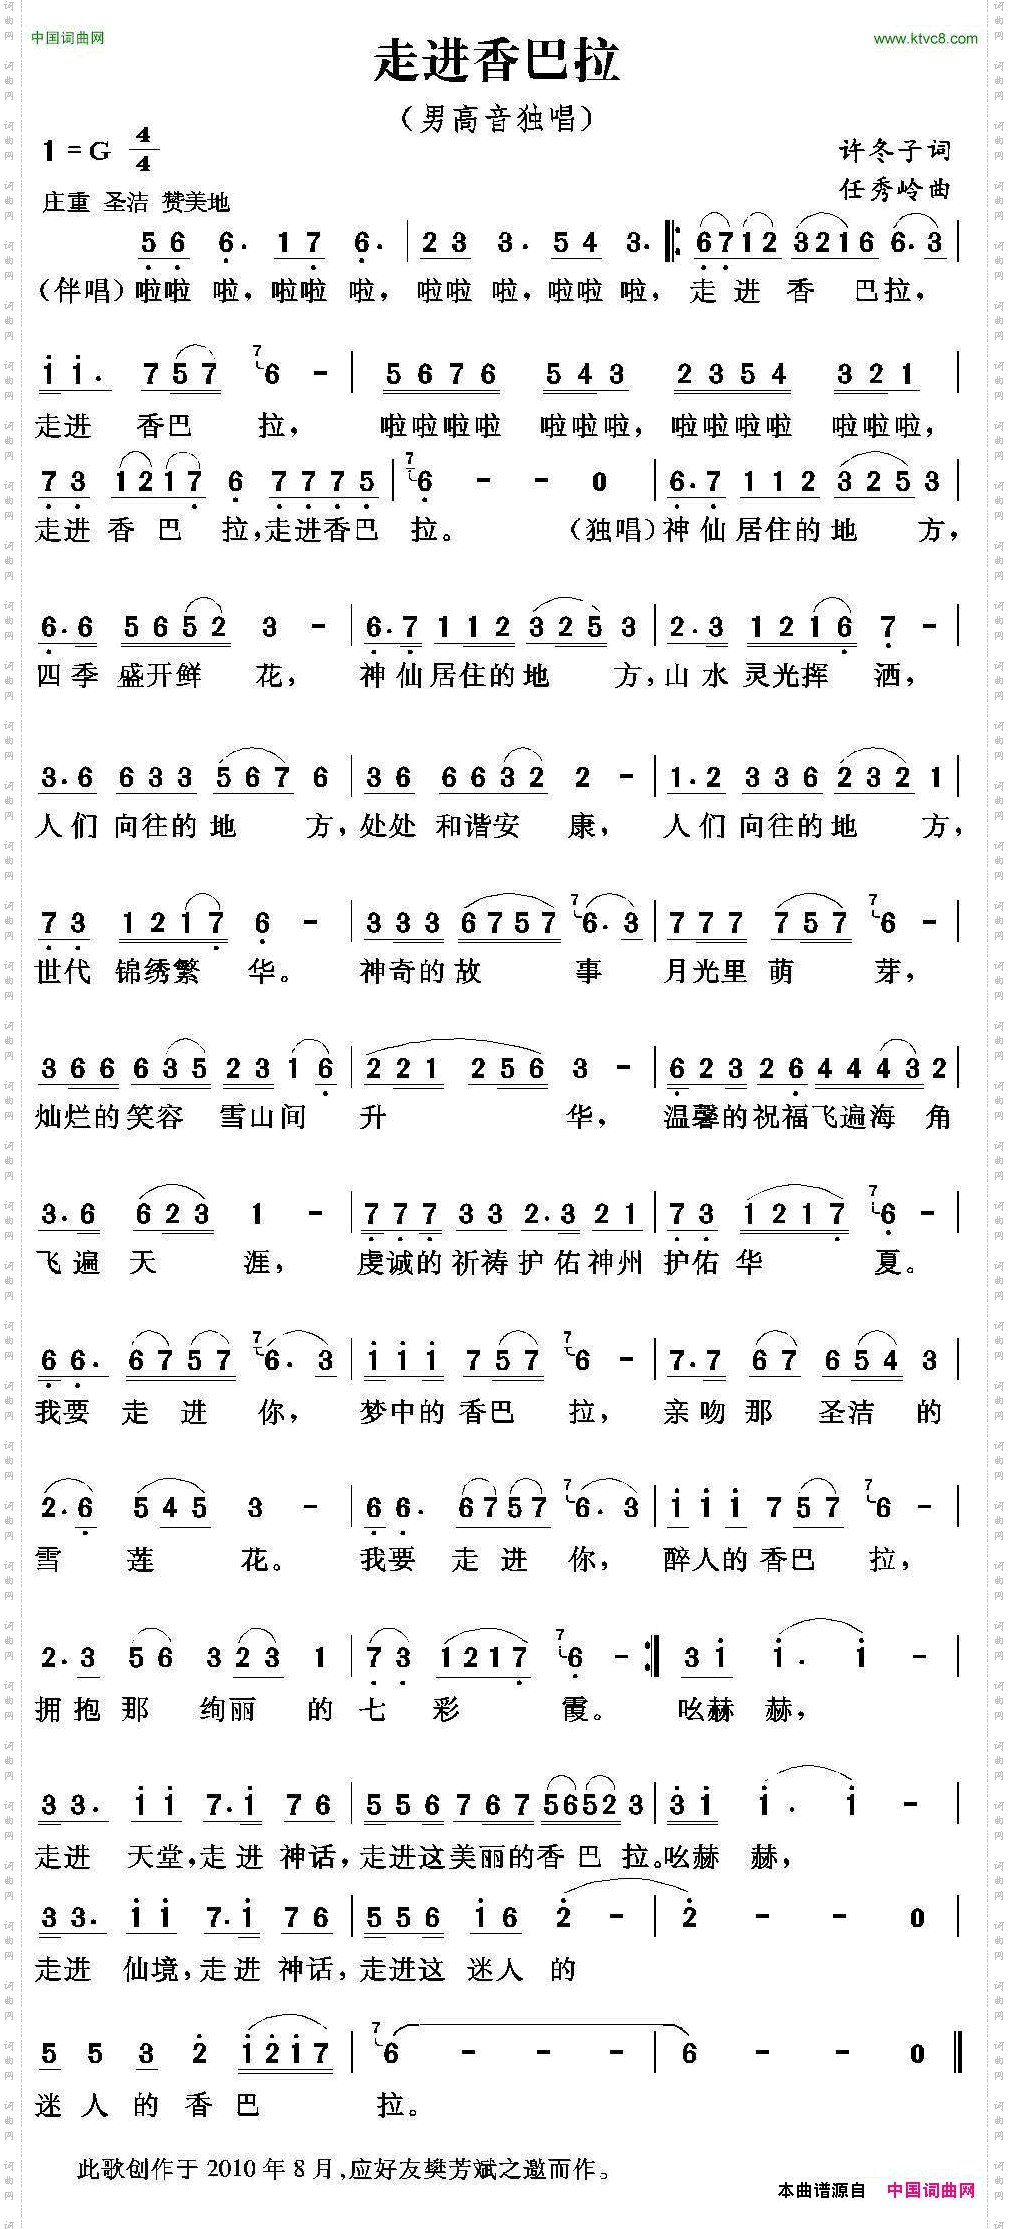 中国词曲网
www.ktvc8.com
走进香巴拉
（男高音独唱）
1 = G 4/4
许冬子词
任秀岭曲
庄重 圣洁 赞美地
5 6 6. 1 7 6. | 2 3 3. 5 4 3. ‖: 6 7 1 2 3 2 1 6 6. 3 |
（伴唱）啦啦 啦，啦啦 啦， 啦啦 啦，啦啦 啦， 走 进 香 巴拉，
i i. 7 5 7 7 6 - | 5 6 7 6 5 4 3 2 3 5 4 3 2 1 |
走进 香巴 拉， 啦啦啦啦 啦啦啦，啦啦啦啦 啦啦啦，
7 3 1 2 1 7 6 7 7 7 5 | 7 6 - - 0 | 6. 7 1 1 2 3 2 5 3
走进 香 巴 拉，走进香巴 拉。 （独唱）神 仙 居住的 地 方，
6. 6 5 6 5 2 3 - | 6. 7 1 1 2 3 2 5 3 | 2. 3 1 2 1 6 7 - |
四 季 盛开鲜 花， 神 仙居住的 地 方，山 水 灵光挥 洒，
3. 6 6 3 3 5 6 7 6 | 3 6 6 6 3 2 2 - | 1. 2 3 3 6 2 3 2 1 |
人 们 向往的 地 方，处处 和谐安 康， 人 们 向往的 地 方，
7 3 1 2 1 7 6 - | 3 3 3 6 7 5 7 7 6. 3 | 7 7 7 7 5 7 7 6 - |
世代 锦绣繁 华。 神奇的 故 事 月光里 萌 芽，
3 6 6 6 3 5 2 3 1 6 | 2 2 1 2 5 6 3 - | 6 2 3 2 6 4 4 4 3 2 |
灿烂的 笑容 雪山间 升 华， 温馨的祝福飞遍海 角
3. 6 6 2 3 1 - | 7 7 7 3 3 2. 3 2 1 | 7 3 1 2 1 7 7 6 - |
飞 遍 天 涯， 虔诚的 祈祷 护 佑神州 护佑 华 夏。
6 6. 6 7 5 7 7 6. 3 | i i i 7 5 7 7 6 - | 7. 7 6 7 6 5 4 3
我要 走 进 你， 梦中的 香巴 拉， 亲 吻 那 圣洁 的
2. 6 5 4 5 3 - | 6 6. 6 7 5 7 7 6. 3 | i i i 7 5 7 7 6 - |
雪 莲 花。 我要 走 进 你， 醉人的 香巴 拉，
2. 3 5 6 3 2 3 1 | 7 3 1 2 1 7 7 6 - :‖ 3 i i. i - |
拥 抱 那 绚丽 的 七 彩 霞。 吆赫 赫，
3 3. i i 7. i 7 6 | 5 5 6 7 6 7 5 6 5 2 3 | 3 i i. i - |
走进 天堂，走 进 神话，走进这美丽的香 巴 拉。吆赫 赫，
3 3. i i 7. i 7 6 | 5 5 6 i 6 2 - | 2 - - 0 |
走进 仙境，走 进 神话，走进这 迷人 的
5 5 3 2 i 2 i 7 | 7 6 - - - | 6 - - 0 ‖
迷 人 的 香 巴 拉。
此歌创作于 2010 年 8 月，应好友樊芳斌之邀而作。
本曲谱源自 中国词曲网